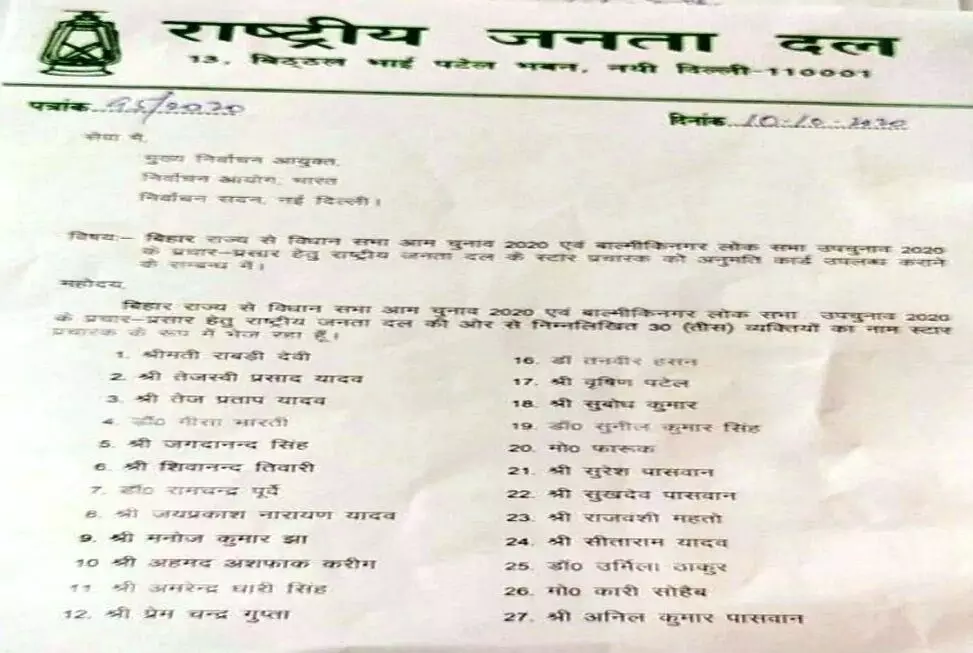 राष्ट्रीय जनता दल
13, विट्ठल भाई पटेल भवन, नयी दिल्ली-110001
पत्रांक 95/2020
दिनांक 10-10-2020
सेवा में,
मुख्य निर्वाचन आयुक्त,
निर्वाचन आयोग, भारत
निर्वाचन सदन, नई दिल्ली।
विषय:- बिहार राज्य से विधान सभा आम चुनाव 2020 एवं बाल्मीकिनगर लोक सभा उपचुनाव 2020
के प्रचार-प्रसार हेतु राष्ट्रीय जनता दल के स्टार प्रचारक को अनुमति कार्ड उपलब्ध कराने
के सम्बन्ध में।
महोदय,
बिहार राज्य से विधान सभा आम चुनाव 2020 एवं बाल्मीकिनगर लोक सभा उपचुनाव 2020
के प्रचार-प्रसार हेतु राष्ट्रीय जनता दल की ओर से निम्नलिखित 30 (तीस) व्यक्तियों का नाम स्टार
प्रचारक के रूप में भेज रहा हूँ।
1. श्रीमती राबड़ी देवी
2. श्री तेजस्वी प्रसाद यादव
3. श्री तेज प्रताप यादव
4. डॉ० मीसा भारती
5. श्री जगदानन्द सिंह
6. श्री शिवानन्द तिवारी
7. डॉ० रामचन्द्र पूर्वे
8. श्री जयप्रकाश नारायण यादव
9. श्री मनोज कुमार झा
10 श्री अहमद अशफाक करीम
11. श्री अमरेन्द्र धारी सिंह
12. श्री प्रेम चन्द्र गुप्ता
16. डॉ तनवीर हसन
17. श्री वृषिण पटेल
18. श्री सुबोध कुमार
19. डॉ० सुनील कुमार सिंह
20. मो० फारूक
21. श्री सुरेश पासवान
22. श्री सुखदेव पासवान
23. श्री राजवंशी महतो
24. श्री सीताराम यादव
25. डॉ० उर्मिला ठाकुर
26. मो० कारी सोहैब
27. श्री अनिल कुमार पासवान